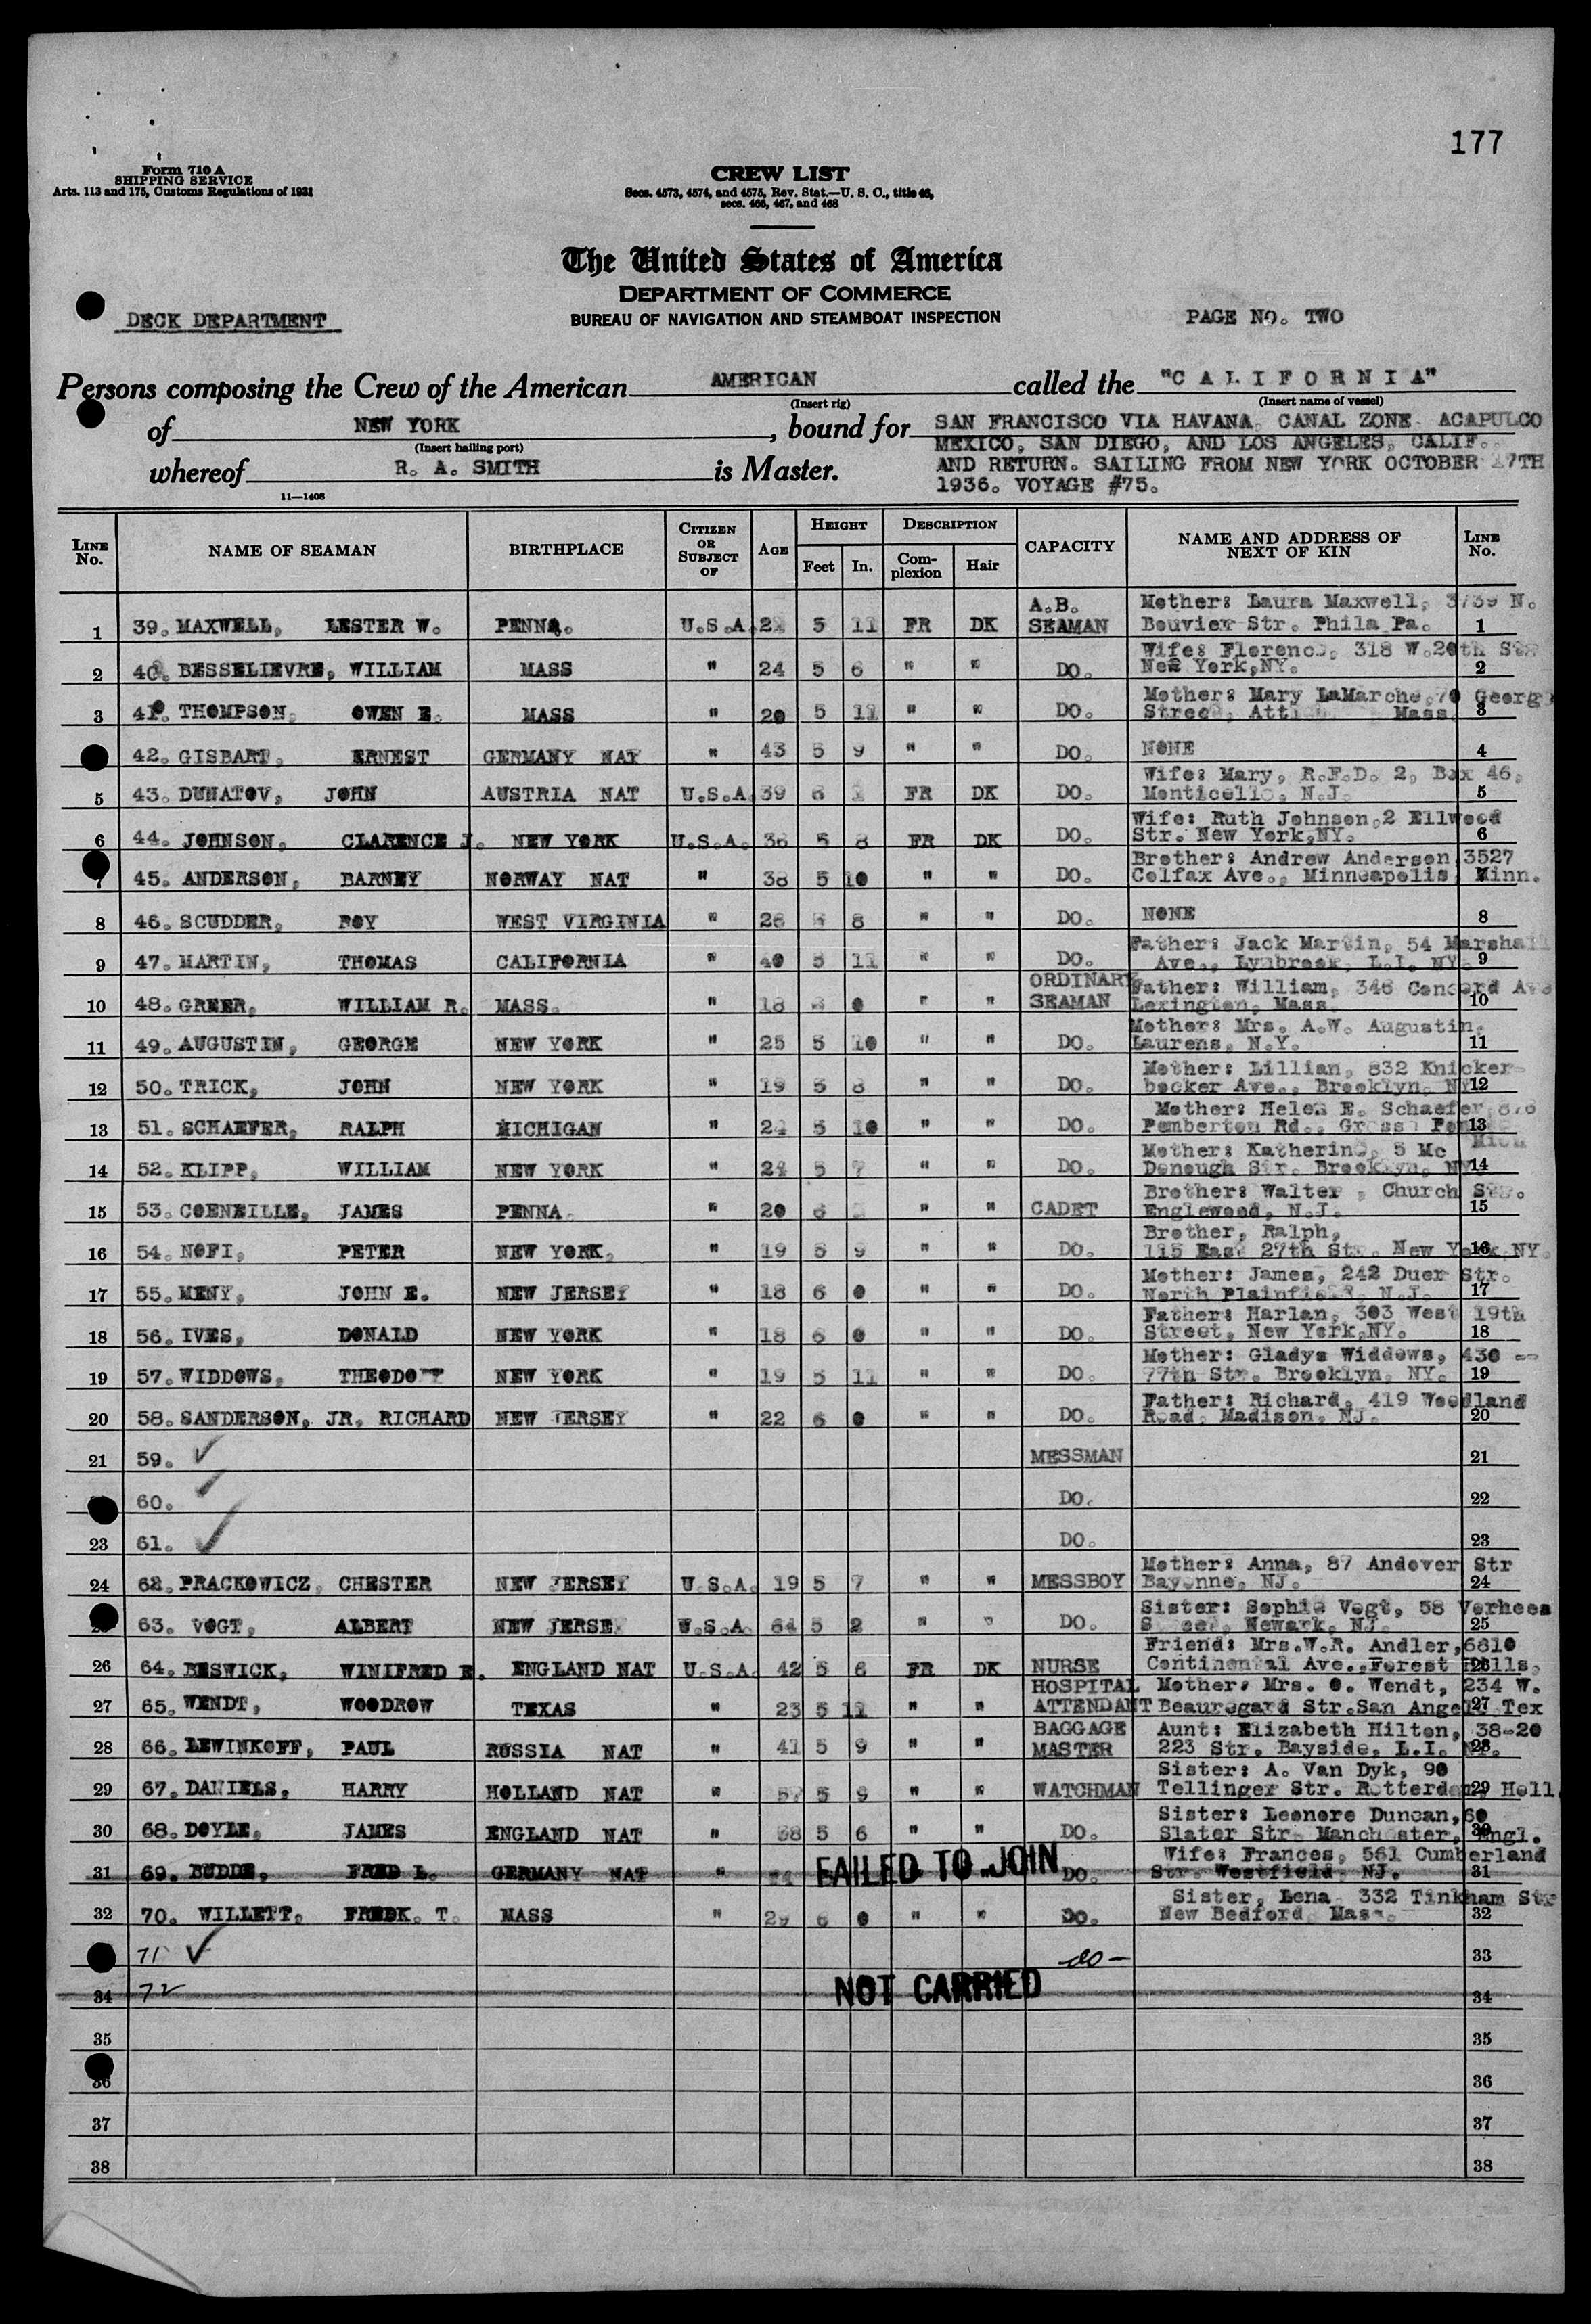 177
Form 710 A
SHIPPING SERVICE
Arts. 113 and 175, Customs Regulations of 1931
CREW LIST
Secs. 4573, 4574, and 4575, Rev. Stat.—U. S. C., title 46,
secs. 466, 467, and 468
The United States of America
DEPARTMENT OF COMMERCE
BUREAU OF NAVIGATION AND STEAMBOAT INSPECTION
DECK DEPARTMENT
PAGE NO. TWO
Persons composing the Crew of the American AMERICAN called the "C A L I F O R N I A"
(Insert rig) (Insert name of vessel)
of NEW YORK, bound for SAN FRANCISCO VIA HAVANA, CANAL ZONE, ACAPULCO
(Insert hailing port) MEXICO, SAN DIEGO, AND LOS ANGELES, CALIF.
whereof R. A. SMITH is Master. AND RETURN. SAILING FROM NEW YORK OCTOBER 17TH
11—1408 1936. VOYAGE #75.
LINE No. NAME OF SEAMAN BIRTHPLACE CITIZEN OR SUBJECT OF AGE HEIGHT Feet In. DESCRIPTION Complexion Hair CAPACITY NAME AND ADDRESS OF NEXT OF KIN LINE No.
1 39. MAXWELL, LESTER W. PENNA. U.S.A. 5 11 FR DK A.B. SEAMAN Mother: Laura Maxwell, 3739 N. Bouvier Str. Phila Pa. 1
2 40. BESSELIEVRE, WILLIAM MASS " 24 5 6 " " DO. Wife: Florence, 318 W.20th Str New York,NY. 2
3 41. THOMPSON, OWEN E. MASS " 20 5 11 " " DO. Mother: Mary LaMarche, 70 George Street, Mass. 3
42. GISBART, ERNEST GERMANY NAT " 43 5 9 " " DO. NONE 4
5 43. DUNATOV, JOHN AUSTRIA NAT U.S.A. 39 6 FR DK DO. Wife: Mary, R.F.D. 2, Box 46, Monticello, N.J. 5
6 44. JOHNSON, CLARENCE J. NEW YORK U.S.A. 36 5 8 FR DK DO. Wife: Ruth Johnson,2 Ellwood Str. New York,NY. 6
7 45. ANDERSON, BARNEY NORWAY NAT " 38 5 10 " " DO. Brother: Andrew Anderson,3527 Colfax Ave., Minneapolis, Minn.
8 46. SCUDDER, ROY WEST VIRGINIA " 26 8 " " DO. NONE 8
9 47. MARTIN, THOMAS CALIFORNIA " 40 5 11 " " DO. Father: Jack Martin, 54 Marshall Ave., Lynbrook, L.I. NY. 9
10 48. GREER, WILLIAM R. MASS. " 18 0 " " ORDINARY SEAMAN Father: William, 346 Concord Ave Lexington, Mass. 10
11 49. AUGUSTIN, GEORGE NEW YORK " 25 5 10 " " DO. Mother: Mrs. A.W. Augustin, Laurens, N.Y. 11
12 50. TRICK, JOHN NEW YORK " 19 5 8 " " DO. Mother: Lillian, 832 Knicker- bocker Ave., Brooklyn, NY 12
13 51. SCHAEFER, RALPH MICHIGAN " 24 5 10 " " DO. Mother: Helen E. Schaefer, Pemberton Rd., Mich 13
14 52. KLIPP, WILLIAM NEW YORK " 24 5 7 " " DO. Mother: Katherine, 5 Mc Donough Str. Brooklyn, NY. 14
15 53. CORNEILLE, JAMES PENNA. " 20 6 " " CADET Brother: Walter , Church Str. Englewood, N.J. 15
16 54. NOFI, PETER NEW YORK. " 19 5 9 " " DO. Brother, Ralph, 115 East 27th Str. New York,NY. 16
17 55. MENY, JOHN E. NEW JERSEY " 18 6 0 " " DO. Mother: James, 242 Duer Str. North Plainfield, N.J. 17
18 56. IVES, DONALD NEW YORK " 18 6 0 " " DO. Father: Harlan, 303 West 19th Street, New York,NY. 18
19 57. WIDDOWS, NEW YORK " 19 5 11 " " DO. Mother: Gladys Widdows, 430 -- 77th Str. Brooklyn, NY. 19
20 58. SANDERSON, JR, RICHARD NEW JERSEY " 22 6 0 " " DO. Father: Richard, 419 Woodland Road, Madison, NJ. 20
21 59. ✓ MESSMAN 21
60. ✓ DO. 22
23 61. ✓ DO. 23
24 62. PRACKOWICZ, CHESTER NEW JERSEY U.S.A. 19 5 7 " " MESSBOY Mother: Anna, 87 Andover Str Bayonne, NJ. 24
63. VOGT, ALBERT NEW JERSEY U.S.A. 64 5 2 " " DO. Sister: Sophie Vogt, 58 Verhees Newark, NJ. 25
26 64. BESWICK, WINIFRED E. ENGLAND NAT U.S.A. 42 5 6 FR DK NURSE Friend: Mrs.W.R. Andler,6810 Continental Ave.,Forest Hills, 26
27 65. WENDT, WOODROW TEXAS " 23 5 11 " " HOSPITAL ATTENDANT Mother: Mrs. O. Wendt, 234 W. Beauregard Str.San Angelo Tex 27
28 66. LEWINKOFF, PAUL RUSSIA NAT " 41 5 9 " " BAGGAGE MASTER Aunt: Elizabeth Hilton, 38-20 223 Str. Bayside, L.I. NY. 28
29 67. DANIELS, HARRY HOLLAND NAT " 5 9 " " WATCHMAN Sister: A. Van Dyk, 90 Tellinger Str. Rotterdam, Holl 29
30 68. DOYLE, JAMES ENGLAND NAT " 38 5 6 " " DO. Sister: Leonore Duncan,60 Slater Str. Manchester, Engl. 30
31 69. BUDDE, FRED L. GERMANY NAT " FAILED TO JOIN DO. Wife: Frances, 561 Cumberland Str. Westfield, NJ. 31
32 70. WILLETT, FREDK. T. MASS " 29 6 0 " " DO. Sister, Lena, 332 Tinkham Str New Bedford, Mass. 32
71 ✓ do- 33
34 72 NOT CARRIED 34
35 35
36 36
37 37
38 38